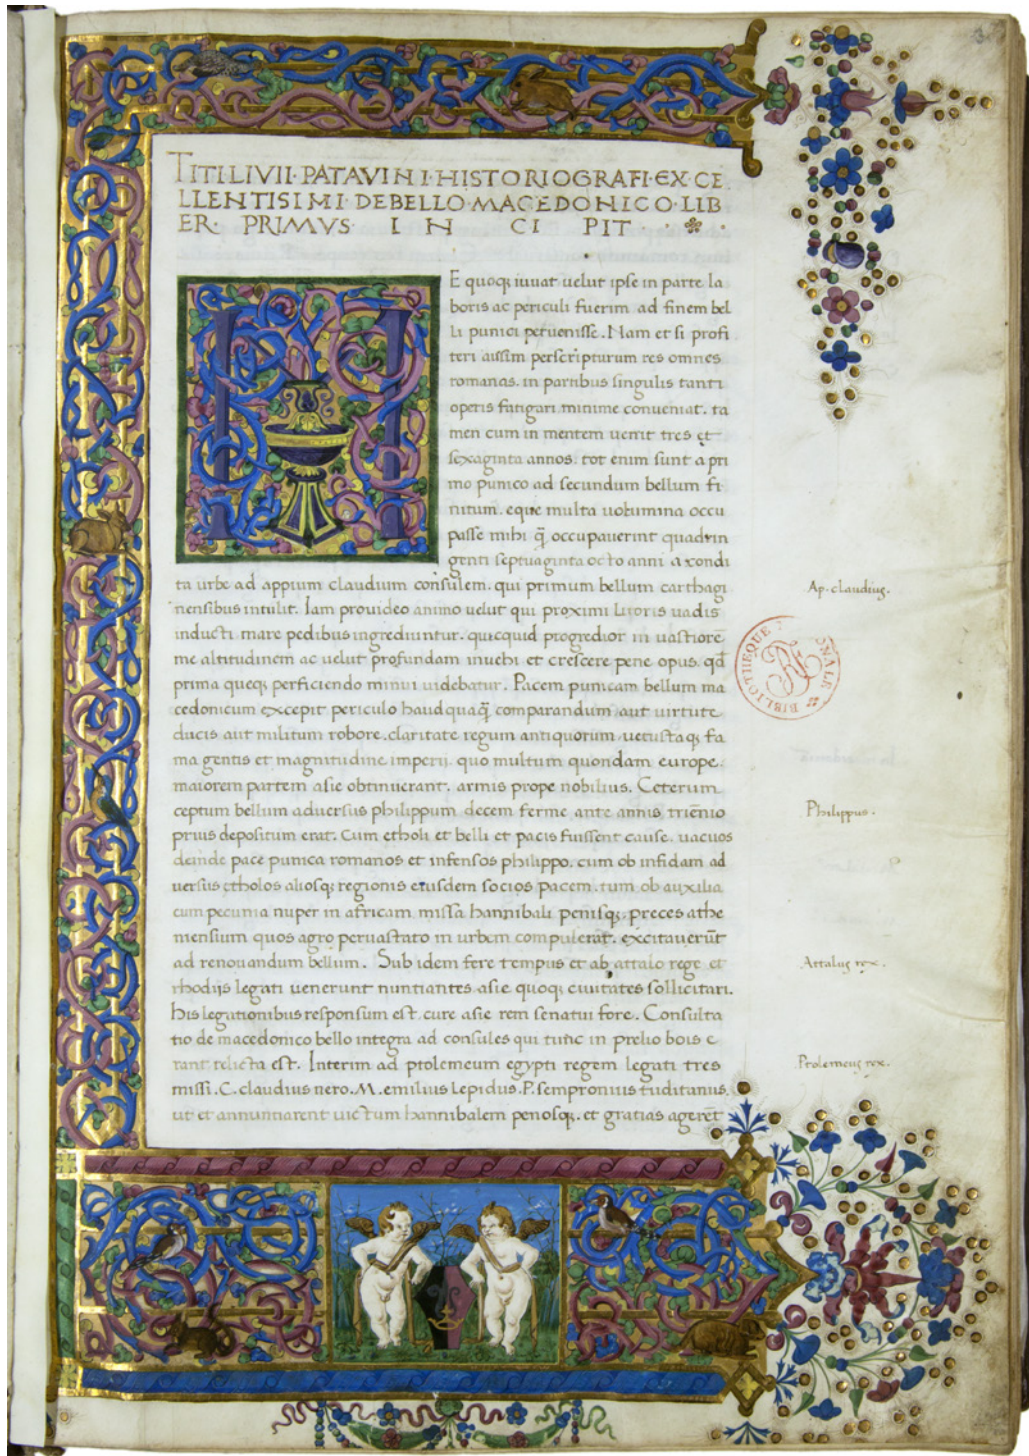 TITI·LIVII·PATAVINI·HISTORIOGRAFI·EX·CE
LLENTISIMI·DEBELLO·MACEDONICO·LIB
ER·PRIMVS· I N CI PIT
H
E quoq; iuuat uelut ipse in parte la
boris ac periculi fuerim ad finem bel
li punici peruenisse. Nam et si profi
teri ausim perscripturum res omnes
romanas. in partibus singulis tanti
operis fatigari minime conueniat. ta
men cum in mentem uenit tres et
sexaginta annos. tot enim sunt a pri
mo punico ad secundum bellum fi
nitum. eque multa uolumina occu
passe mihi q̃ occupauerint quadrin
genti septuaginta octo anni a condi
ta urbe ad appium claudium consulem. qui primum bellum carthagi
nensibus intulit. Iam prouideo animo uelut qui proximi litoris uadis
inducti mare pedibus ingrediuntur. quicquid progredior in uastiorē
me altitudinem ac uelut profundam inuehi et crescere pene opus. qd̃
prima queq; perficiendo minui uidebatur. Pacem punicam bellum ma
cedonicum excepit periculo haud quaq̃ comparandum aut uirtute
ducis aut militum robore. claritate regum antiquorum uetustaq; fa
ma gentis et magnitudine imperij. quo multum quondam europe.
maiorem partem asie obtinuerant. armis prope nobilius. Ceterum
ceptum bellum aduersus philippum decem ferme ante annis triēnio
prius depositum erat. Cum etholi et belli et pacis fuissent cause. uacuos
deinde pace punica romanos et infensos philippo. cum ob infidam ad
uersus etholos aliosq; regionis eiusdem socios pacem. tum ob auxilia
cum pecunia nuper in africam missa hannibali penisq;. preces athe
niensium quos agro peruastato in urbem compulerat. excitauerūt
ad renouandum bellum. Sub idem fere tempus et ab attalo rege et
rhodijs legati uenerunt nuntiantes asie quoq; ciuitates sollicitari.
his legationibus responsum est. cure asie rem senatui fore. Consulta
tio de macedonico bello integra ad consules qui tunc in prelio bois e
rant relicta est. Interim ad ptolemeum egypti regem legati tres
missi. C. claudius nero. M. emilius lepidus. P. sempronius tuditanus.
ut et annuntiarent uictum hannibalem penosq;. et gratias agerēt
Ap. claudius.
BIBLIOTHEQUE NATIONALE
Philippus.
Attalus rex.
Ptolemeus rex.